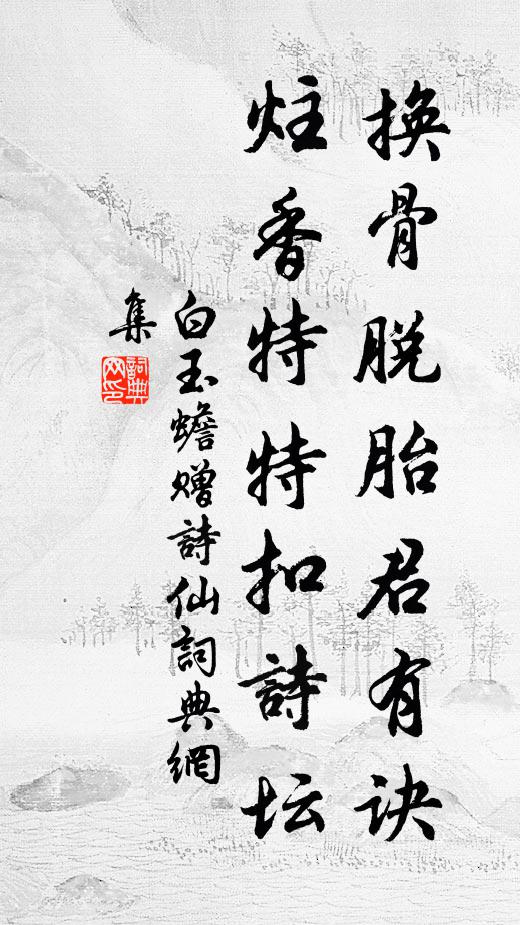 换骨脱胎君有诀
炷香特特扣詩坛
白玉蟾赠詩仙詞典網
集
詞典网印